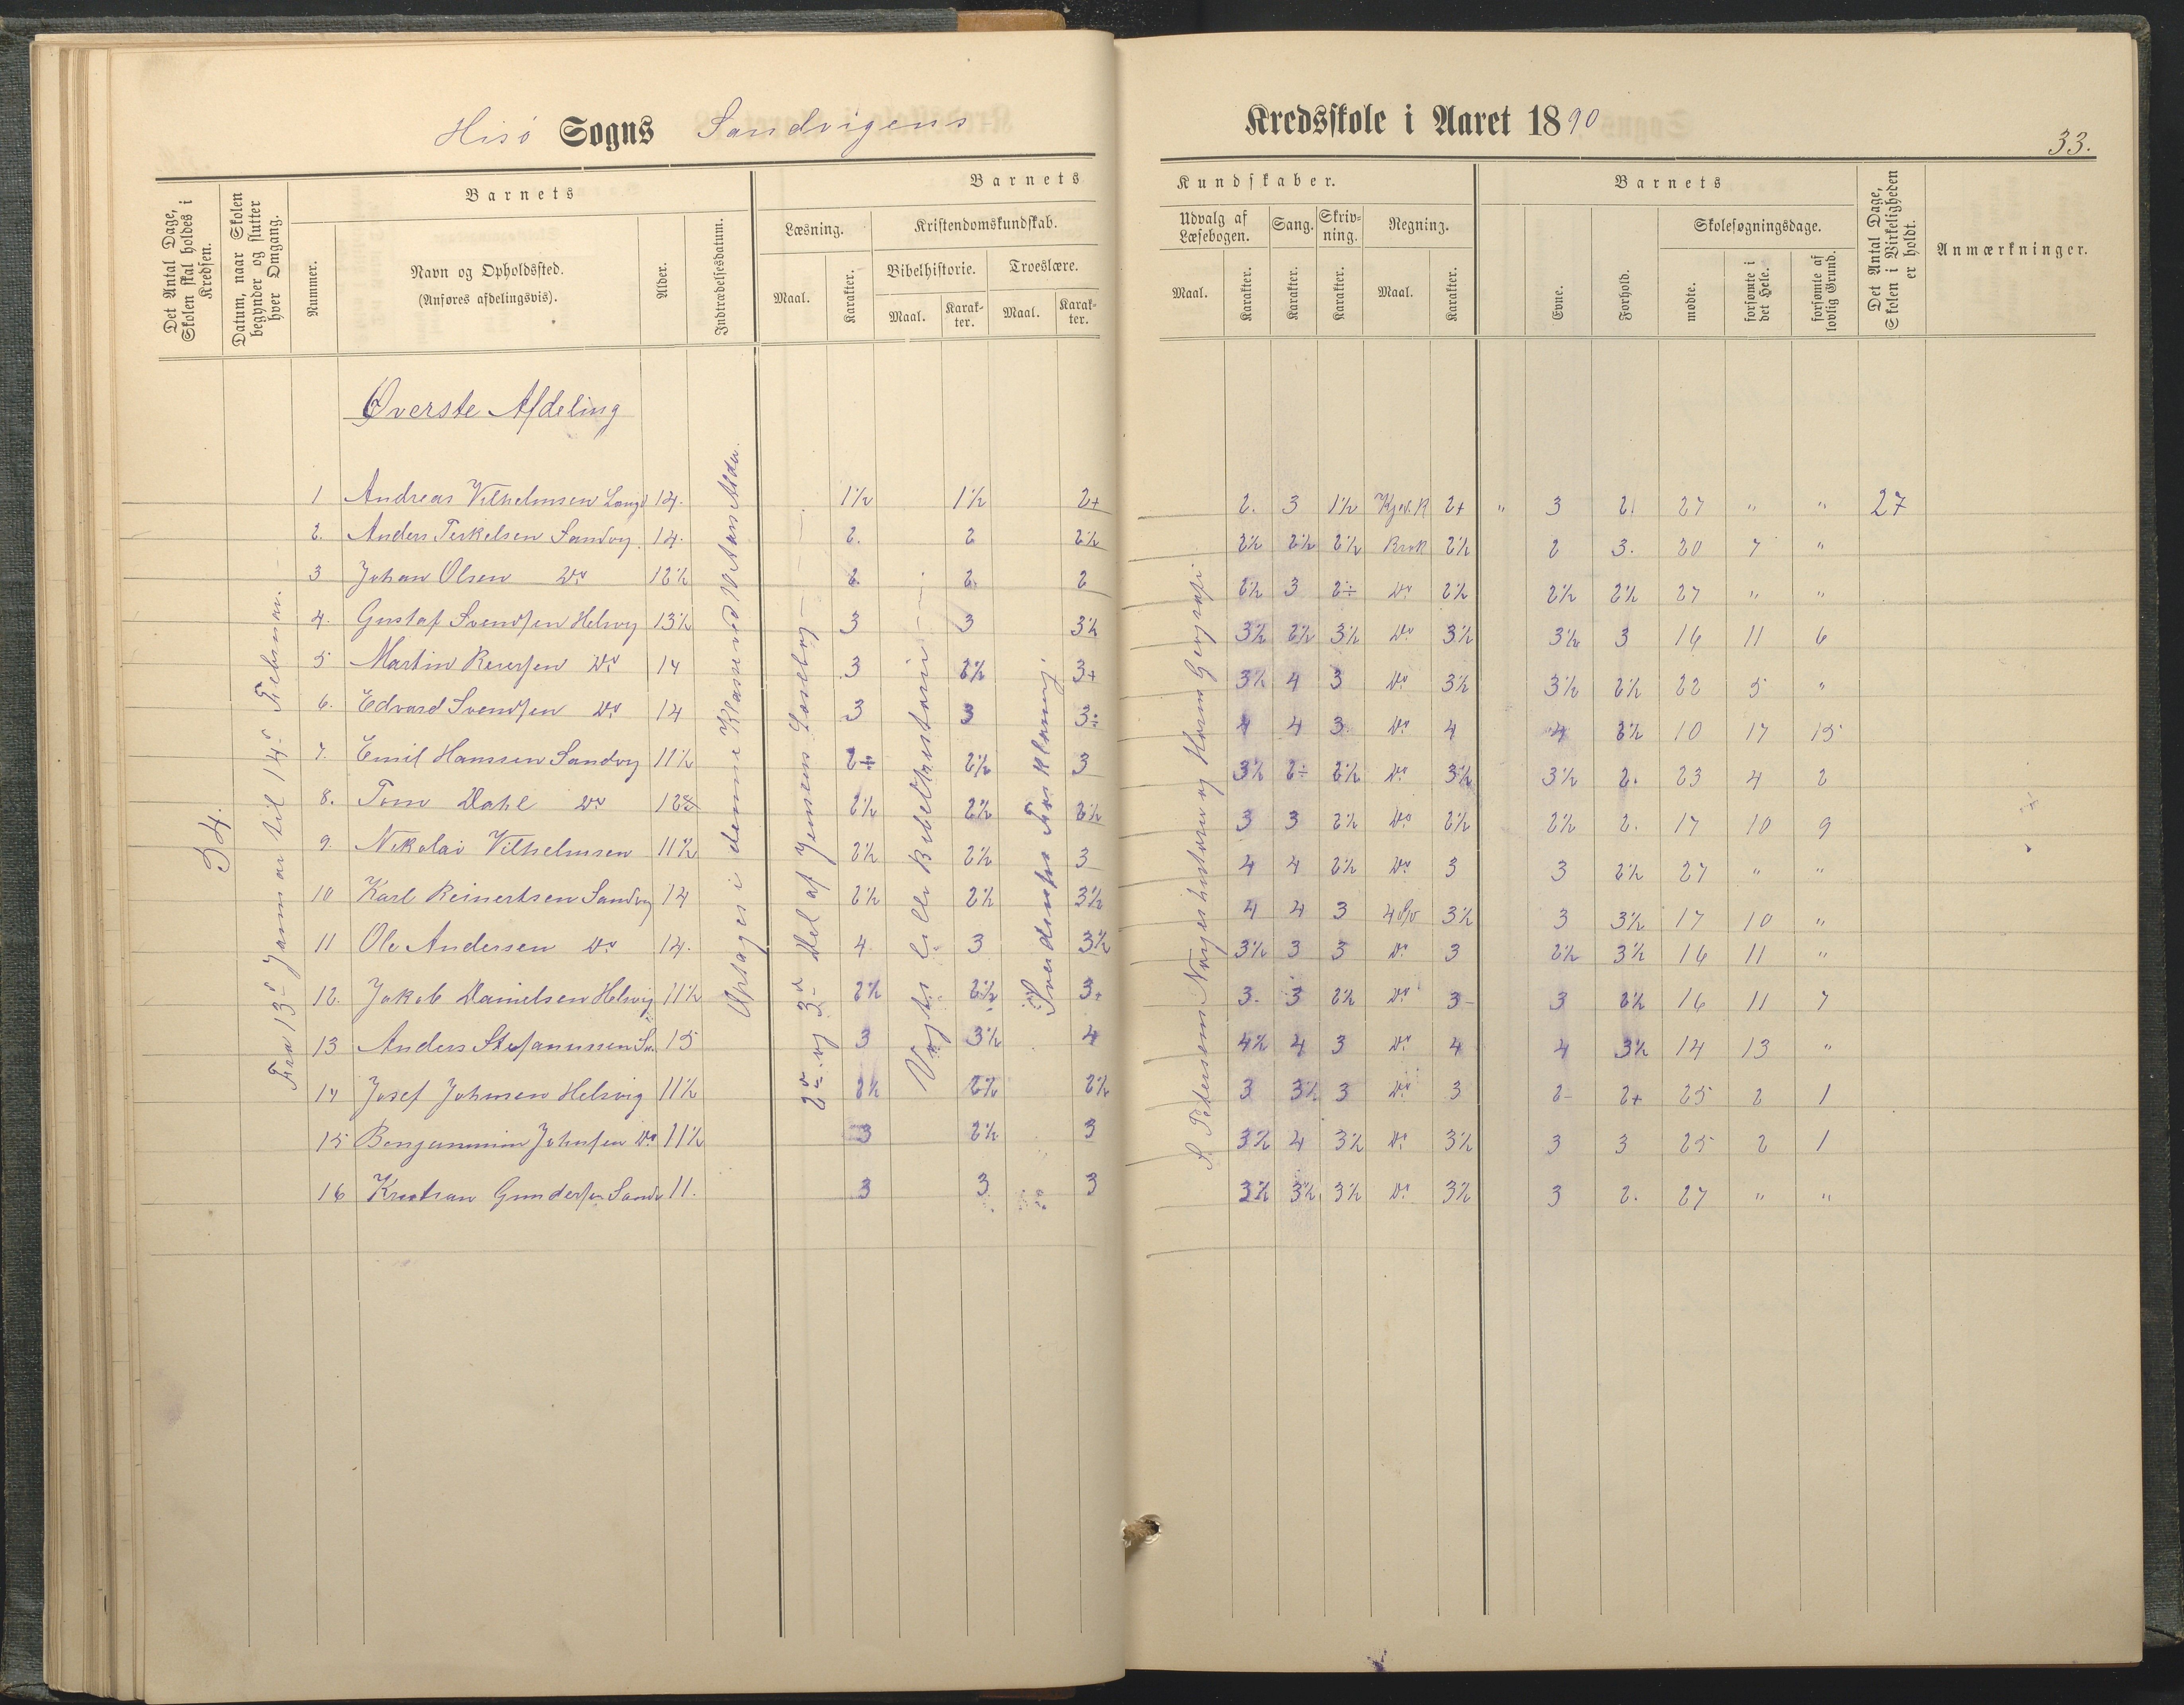 Hisö Sogns Sandvigens Kredsskole i Aaret 1890
33.
Det Antal Dage, Skolen skal holdes i Kredsen.
Datum, naar Skolen begynder og slutter hver Omgang.
Barnets
Nummer.
Navn og Opholdssted.
(Anføres afdelingsvis).
Alder.
Indtrædelsesdatum.
Barnets Kundskaber.
Læsning.
Maal.
Karakter.
Kristendomskundskab.
Bibelhistorie.
Maal.
Karakter.
Troeslære.
Maal.
Karakter.
Udvalg af Læsebogen.
Maal.
Karakter.
Sang.
Karakter.
Skrivning.
Karakter.
Regning.
Maal.
Karakter.
Barnets
Evne.
Forhold.
Skolesøgningsdage.
mødte.
forsømte i det Hele.
forsømte af lovlig Grund.
Det Antal Dage, Skolen i Virkeligheden er holdt.
Anmærkninger.
Øverste Afdeling
54.
Fra 13de Januar til 14de Februar.
Optages i denne Klasse ved Aars Alder
2den og 3die Del af Jensens Læsebog
Vogts lille Bibelhistorie
Sverdrups Forklaring.
S. Petersens Norges historie og Horns Geografi
1 Andreas Vilhelmsen 14. 1½ 1½ 2+ 2. 3 1½ Kjed.R 2+ " 3 2. 27 " " 27
2. Anders Terkelsen Sandvg. 14. 2. 2 2½ 2½ 2½ 2½ Brøk 2½ 2 3. 20 7 "
3 Johan Olsen Do 12½ 2. 2. 2 2½ 3 2÷ Do 2½ 2½ 2½ 27 " "
4. Gustaf Svendsen Helsvg 13½ 3 3 3½ 3½ 2½ 3½ Do 3½ 3½ 3 16 11 6
5 Martin Do 14 3 2½ 3+ 3½ 4 3 Do 3½ 3½ 2½ 22 5 "
6. Edvard Svendsen Do 14 3 3 3÷ 4 4 3. Do 4 4 2½ 10 17 15
7. Emil Hanssen Sandvg 11½ 2÷ 2½ 3 3½ 2÷ 2½ Do 3½ 3½ 2. 23 4 2
8. Tom Dahl Do 12 2½ 2½ 2½ 3 3 2½ Do 2½ 2½ 2. 17 10 9
9. Nikolai Vilhelmsen 11½ 2½ 2½ 3 4 4 2½ Do 3 3 2½ 27 " "
10 Karl Reinertsen Sandvg 14 2½ 2½ 3½ 4 4 3 3½ 3 3½ 17 10 "
11 Ole Andersen Do 14. 4 3 3½ 3½ 3 3 Do 3 2½ 3½ 16 11 "
12. Jakob Danielsen Helsvig 11½ 2½ 2½ 3+ 3. 3 2½ Do 3 3 2½ 16 11 7
13 Anders Stefanussen Sa. 15 3 3½ 4 4½ 4 3 Do 4 4 3½ 14 13 "
14 Josef Johnsen Helsvig 11½ 2½ 2½ 2½ 3 3½ 3 Do 3 2- 2+ 25 2 1
15 Benjammin Johnsen Do 11½ 3 2½ 3 3½ 4 3½ Do 3½ 3 3 25 2 1
16 Kristian Gundersen Sandv 11. 3 3 3 3½ 3½ 3½ Do 3½ 3 2. 27 " "